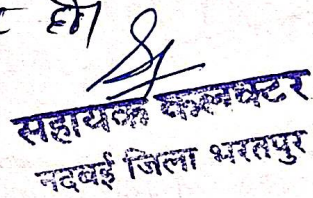 हो
सहायक कलक्टर
नदबई जिला भरतपुर